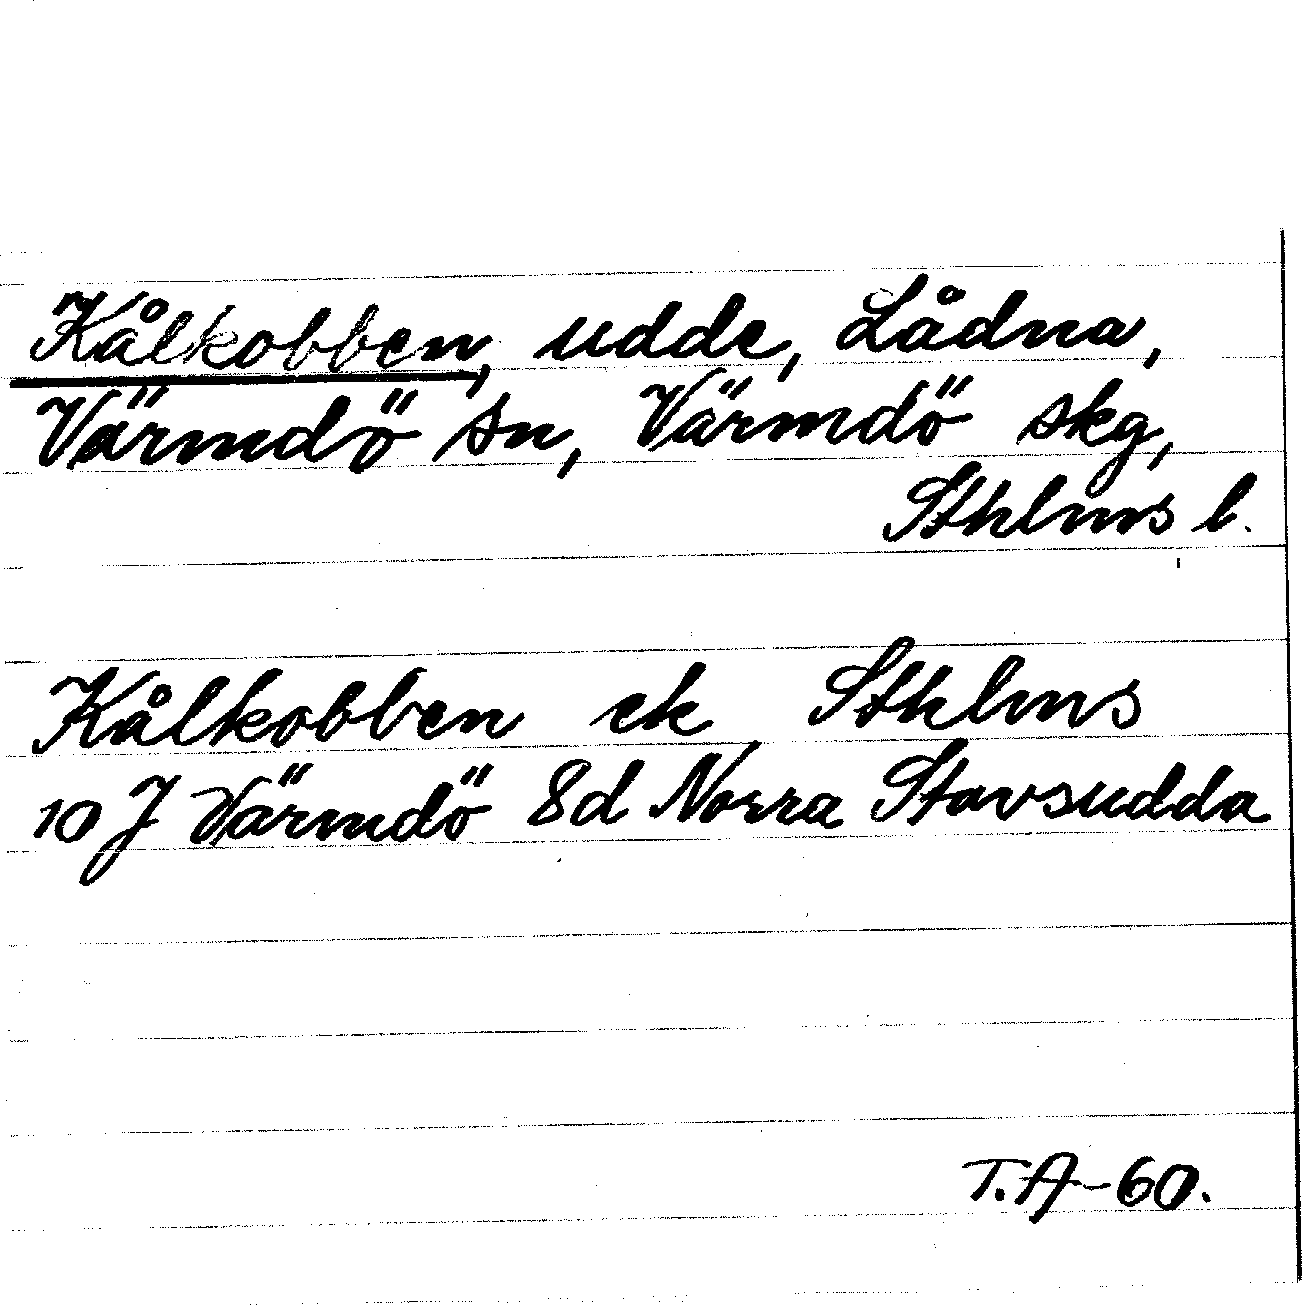 Kålkobben, udde, Lådna,
Värmdö sn, Värmdö skg,
Sthlms l.
Kålkobben ek Sthlms
10 J Värmdö 8d Norra Stavsudda
T.A-60.